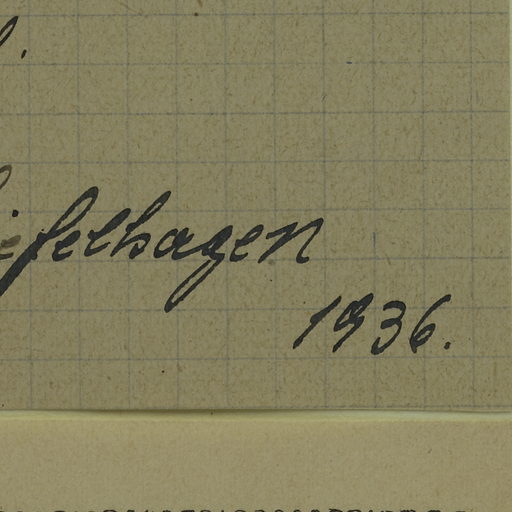 ifelhagen
1936.